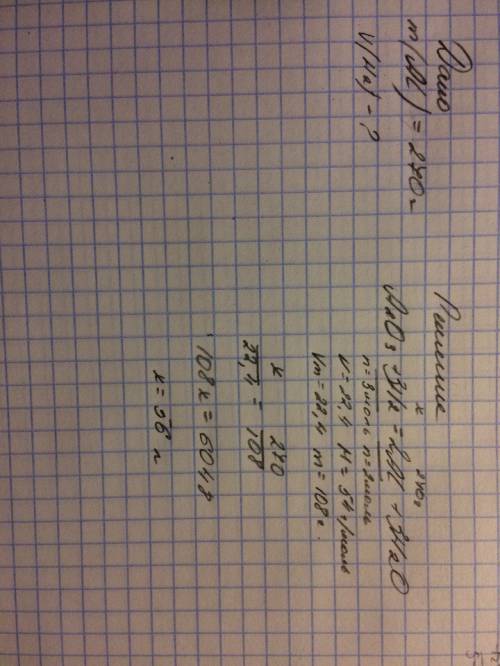 Дано
m(Al) = 270г
V(H2) - ?
Решение
x 270г
Al2O3 + 3H2 = 2Al + 3H2O
n=3моль n=2моль
V=22,4 M=54г/моль
Vm=22,4 m=108г.
x 270
22,4 = 108
108x = 6048
x = 56 л